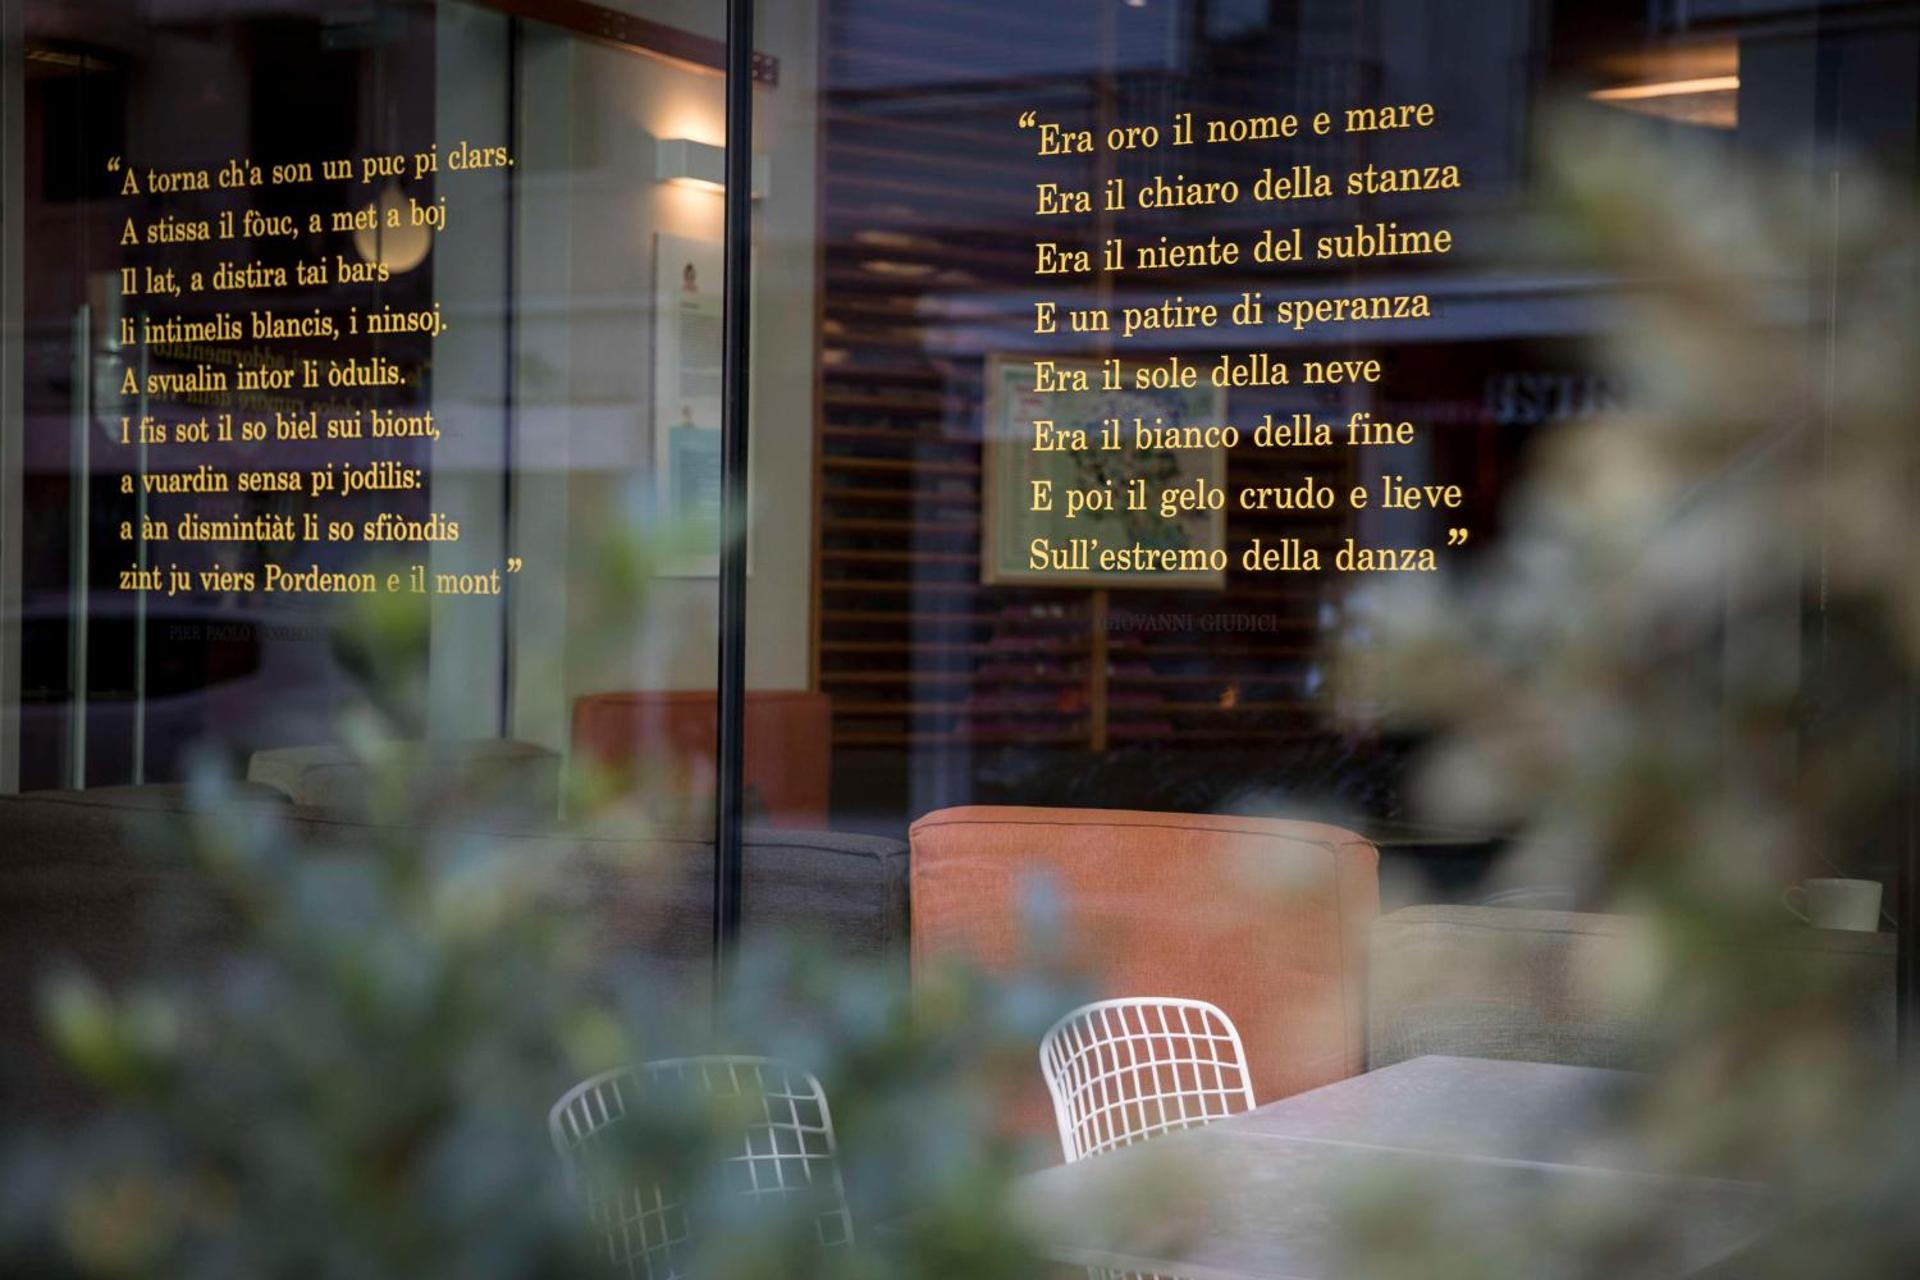 “A torna ch'a son un puc pi clars.
A stissa il fòuc, a met a boj
Il lat, a distira tai bars
li intimelis blancis, i ninsoj.
A svualin intor li òdulis.
I fis sot il so biel sui biont,
a vuardin sensa pi jodilis:
a àn dismintiàt li so sfiòndis
zint ju viers Pordenon e il mont”
PIER PAOLO
“Era oro il nome e mare
Era il chiaro della stanza
Era il niente del sublime
E un patire di speranza
Era il sole della neve
Era il bianco della fine
E poi il gelo crudo e lieve
Sull’estremo della danza”
GIOVANNI GIUDICI